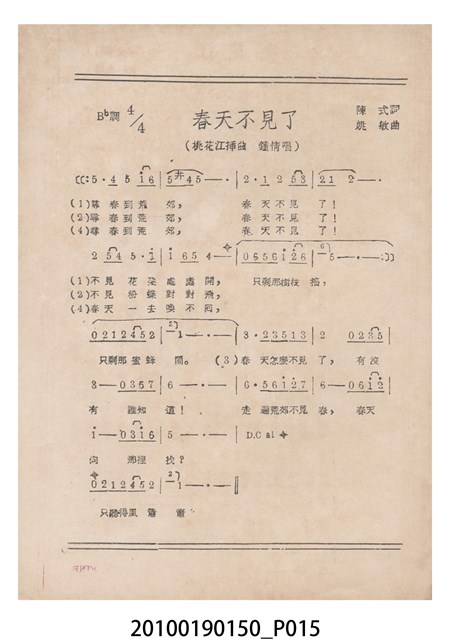 Bb調 4/4
春天不見了
陳式詞
姚敏曲
(桃花江揷曲 鍾情唱)
(1)尋春到荒郊, 春天不見了!
(2)尋春到荒郊, 春天不見了!
(4)尋春到荒郊, 春天不見了!
(1)不見花朶處處開, 只剩那樹枝搖,
(2)不見粉蝶對對飛,
(4)春天一去喚不回,
0212452 1—·— 3·23513 2 0235
只剩那蜜蜂鬧。 (3)春天怎麽不見了, 有沒
3—0357 6—·— 6·56127 6—0612
有 誰知道! 走遍荒郊不見春, 春天
1—0316 5—·— D.C al
向 那裡找?
0212452 1—·—
只聽得風蕭蕭
20100190150_P015